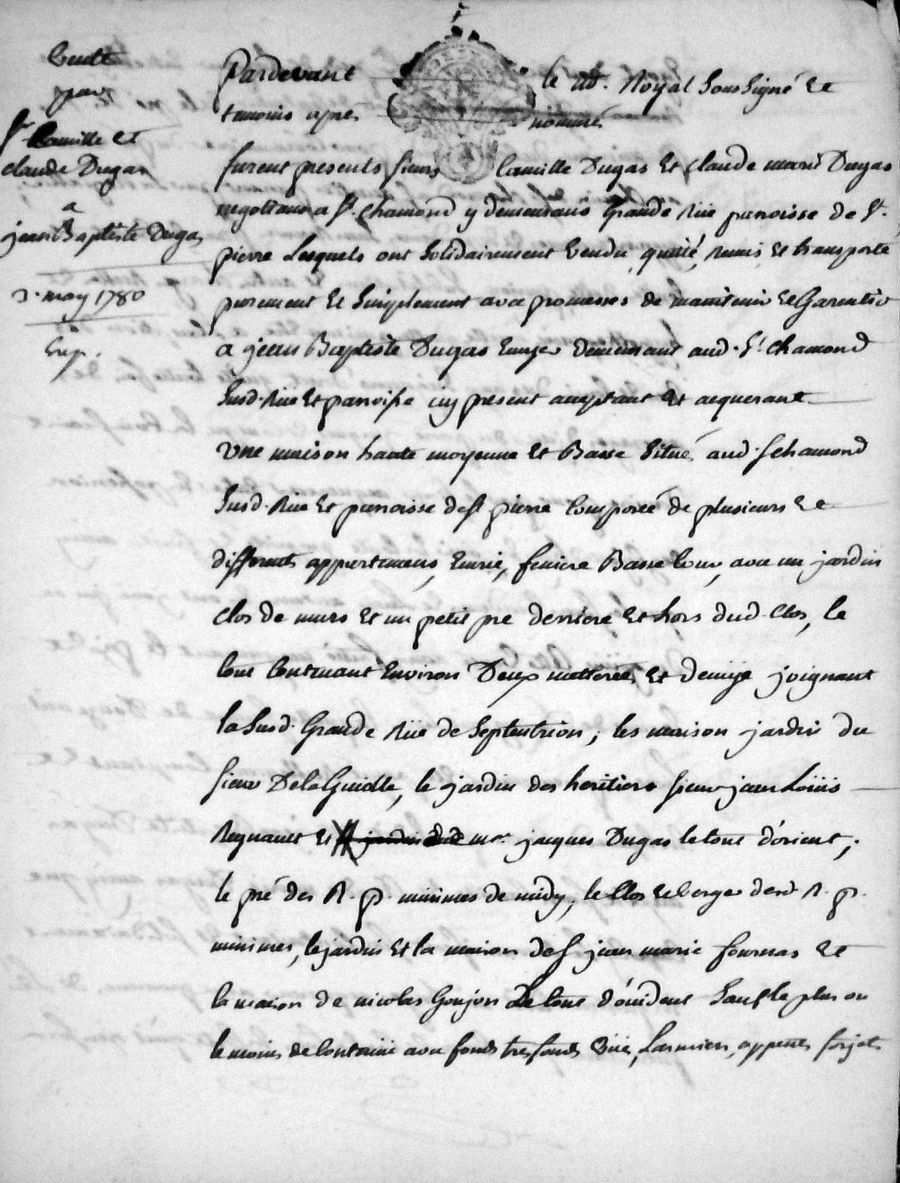 Vente
par
Sr Camille et
claude Dugas
a
jean Baptiste Dugas
2. may 1780
Exp.
Pardevant le no. Royal Soussigné Et
temoins apres nommé
furent presents sieurs Camille Dugas Et claude marie Dugas
negottians a St. chamond y demeurans Grande Rüe paroisse de St.
pierre Lesquels ont Solidairement Vendu, quitté, Remis Et transporté
purement Et Simplement avec promesses de maintenir et Garentir
a jean Baptiste Dugas demeurant aud. St chamond
Susd. Rüe Et paroisse icy present acceptant Et acquerant
Une maison haute moyenne Et Basse Situé aud. St chamond
Susd. Rüe Et paroisse de St pierre Composée de plusieurs Et
differents appartemens, Ecurie, feniere Basse Cour, avec un jardin
clos de murs Et un petit pré derriere Et hors dud. Clos, le
tout Contenant Environ Deux metterées Et demye joignant
la Susd. Grande Rüe de Septentrion; les maison jardin du
sieur Dela Guiolle, le jardin des heritiers sieur jean Loüis
Regnault Et mr. jacques Dugas le tout d'orient;
le pré des R. p. minimes de midy, le Clos et berger desd. R. p.
minimes, le jardin Et la maison de Sr. jean marie fournas Et
la maison de nicolas Goujon Le tout d'occident Sauf le plus ou
le moins de Contenü avec fonds tresfonds Vüe, Larmiers, appents forjets